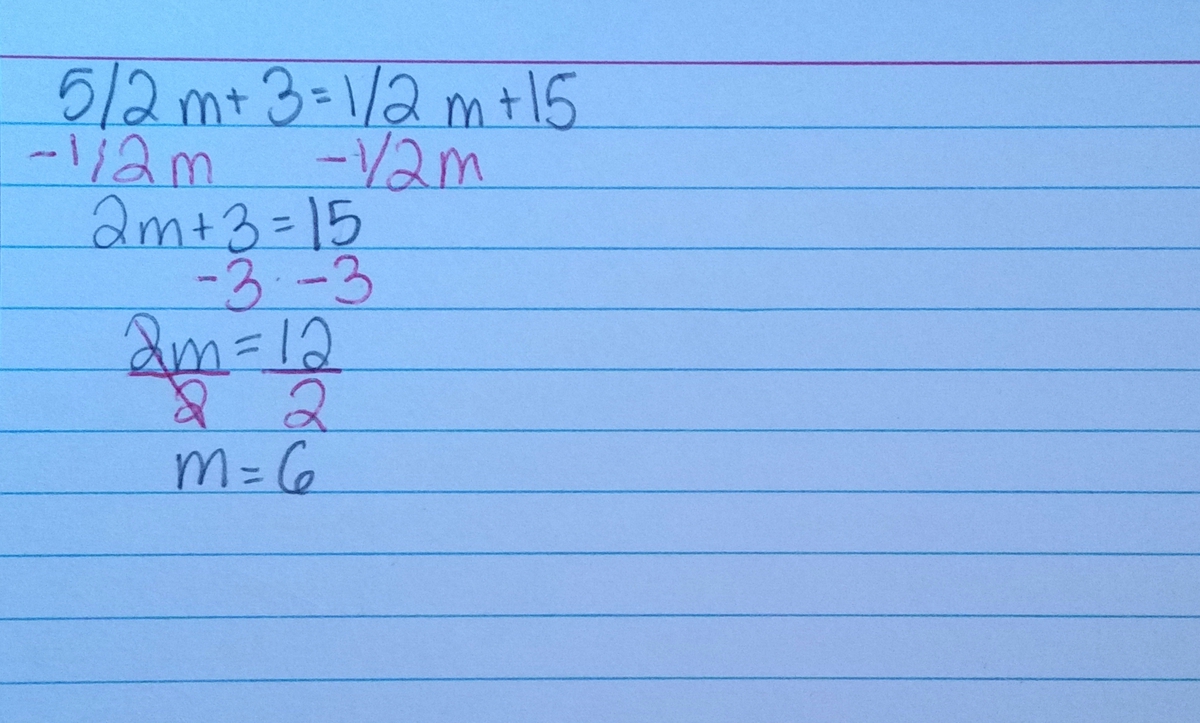 5/2 m + 3 = 1/2 m + 15
-1/2 m -1/2 m
2m + 3 = 15
-3 -3
2m = 12
2 2
m = 6